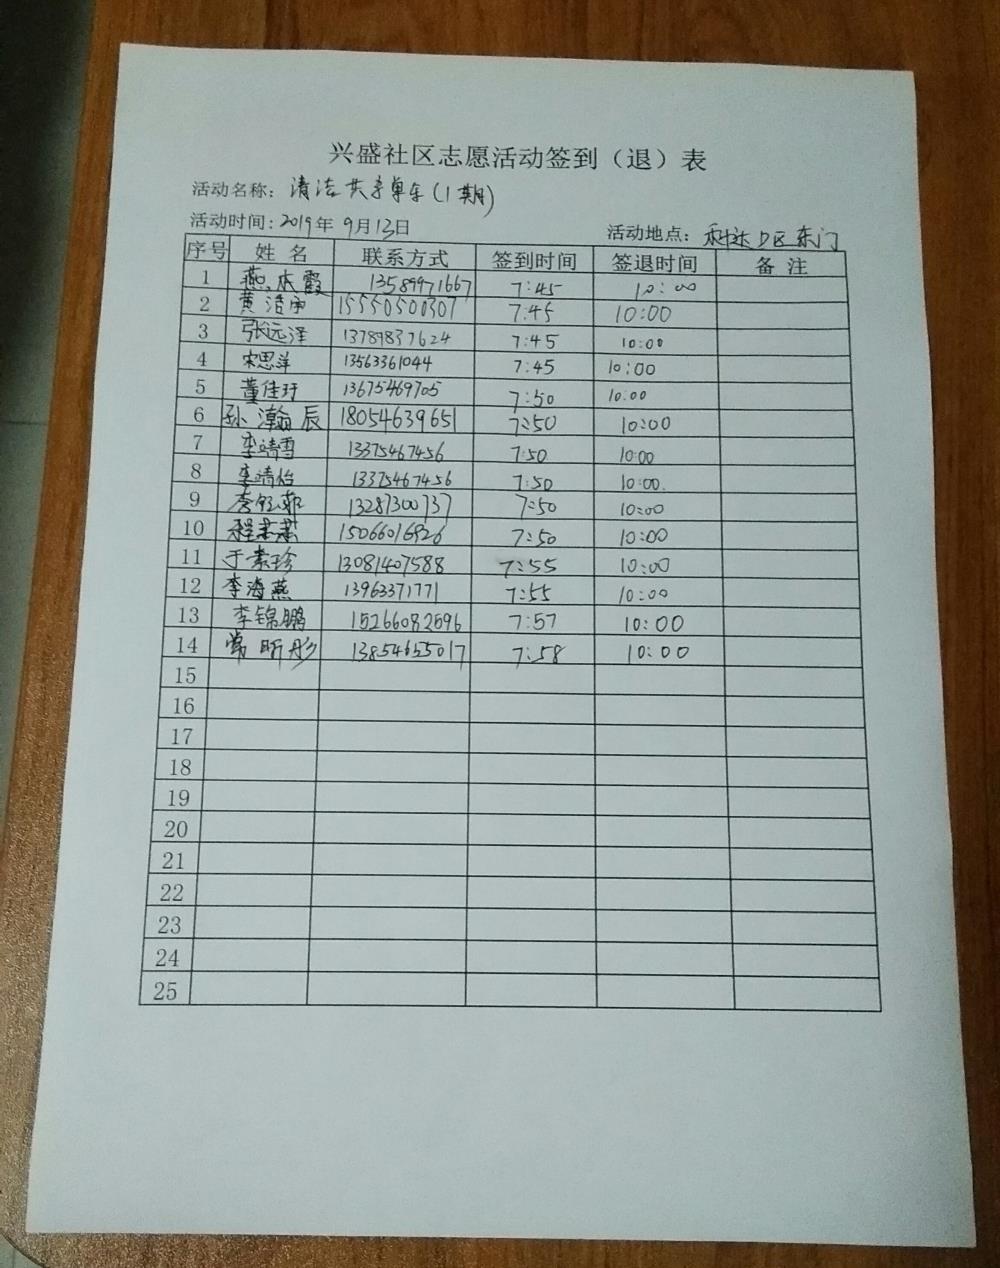 兴盛社区志愿活动签到（退）表
活动名称：清洁共享单车(1期)
活动时间：2019年 9月13日 活动地点：科达D区东门
序号 姓 名 联系方式 签到时间 签退时间 备 注
1 燕杰霞 13589971667 7:45 10:00
2 黄浩宇 15550500307 7:45 10:00
3 张远泽 13789837624 7:45 10:00
4 宋思洋 13563361044 7:45 10:00
5 董佳玗 13675469705 7:50 10:00
6 孙瀚辰 18054639651 7:50 10:00
7 李靖雪 13375467456 7:50 10:00
8 李靖怡 13375467456 7:50 10:00.
9 李钰菲 13287300737 7:50 10:00
10 程潇潇 15066016926 7:50 10:00
11 于素珍 13081407588 7:55 10:00
12 李海燕 13963371771 7:55 10:00
13 李锦鹏 15266082696 7:57 10:00
14 常昕彤 13854655017 7:58 10:00
15
16
17
18
19
20
21
22
23
24
25